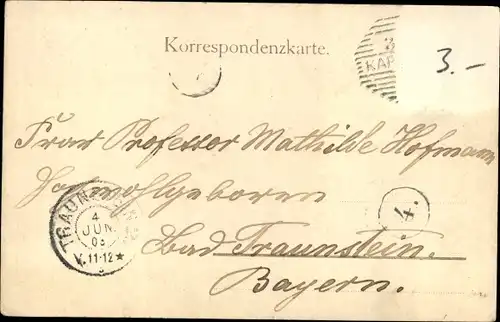 Korrespondenzkarte.
KAR
3.-
Frau Professor Mathilde Hofmann
Hochwohlgeboren
TRAUNSTEIN
4
JUN.
03
V. 11-12 ★
4.
Bad Traunstein.
Bayern.